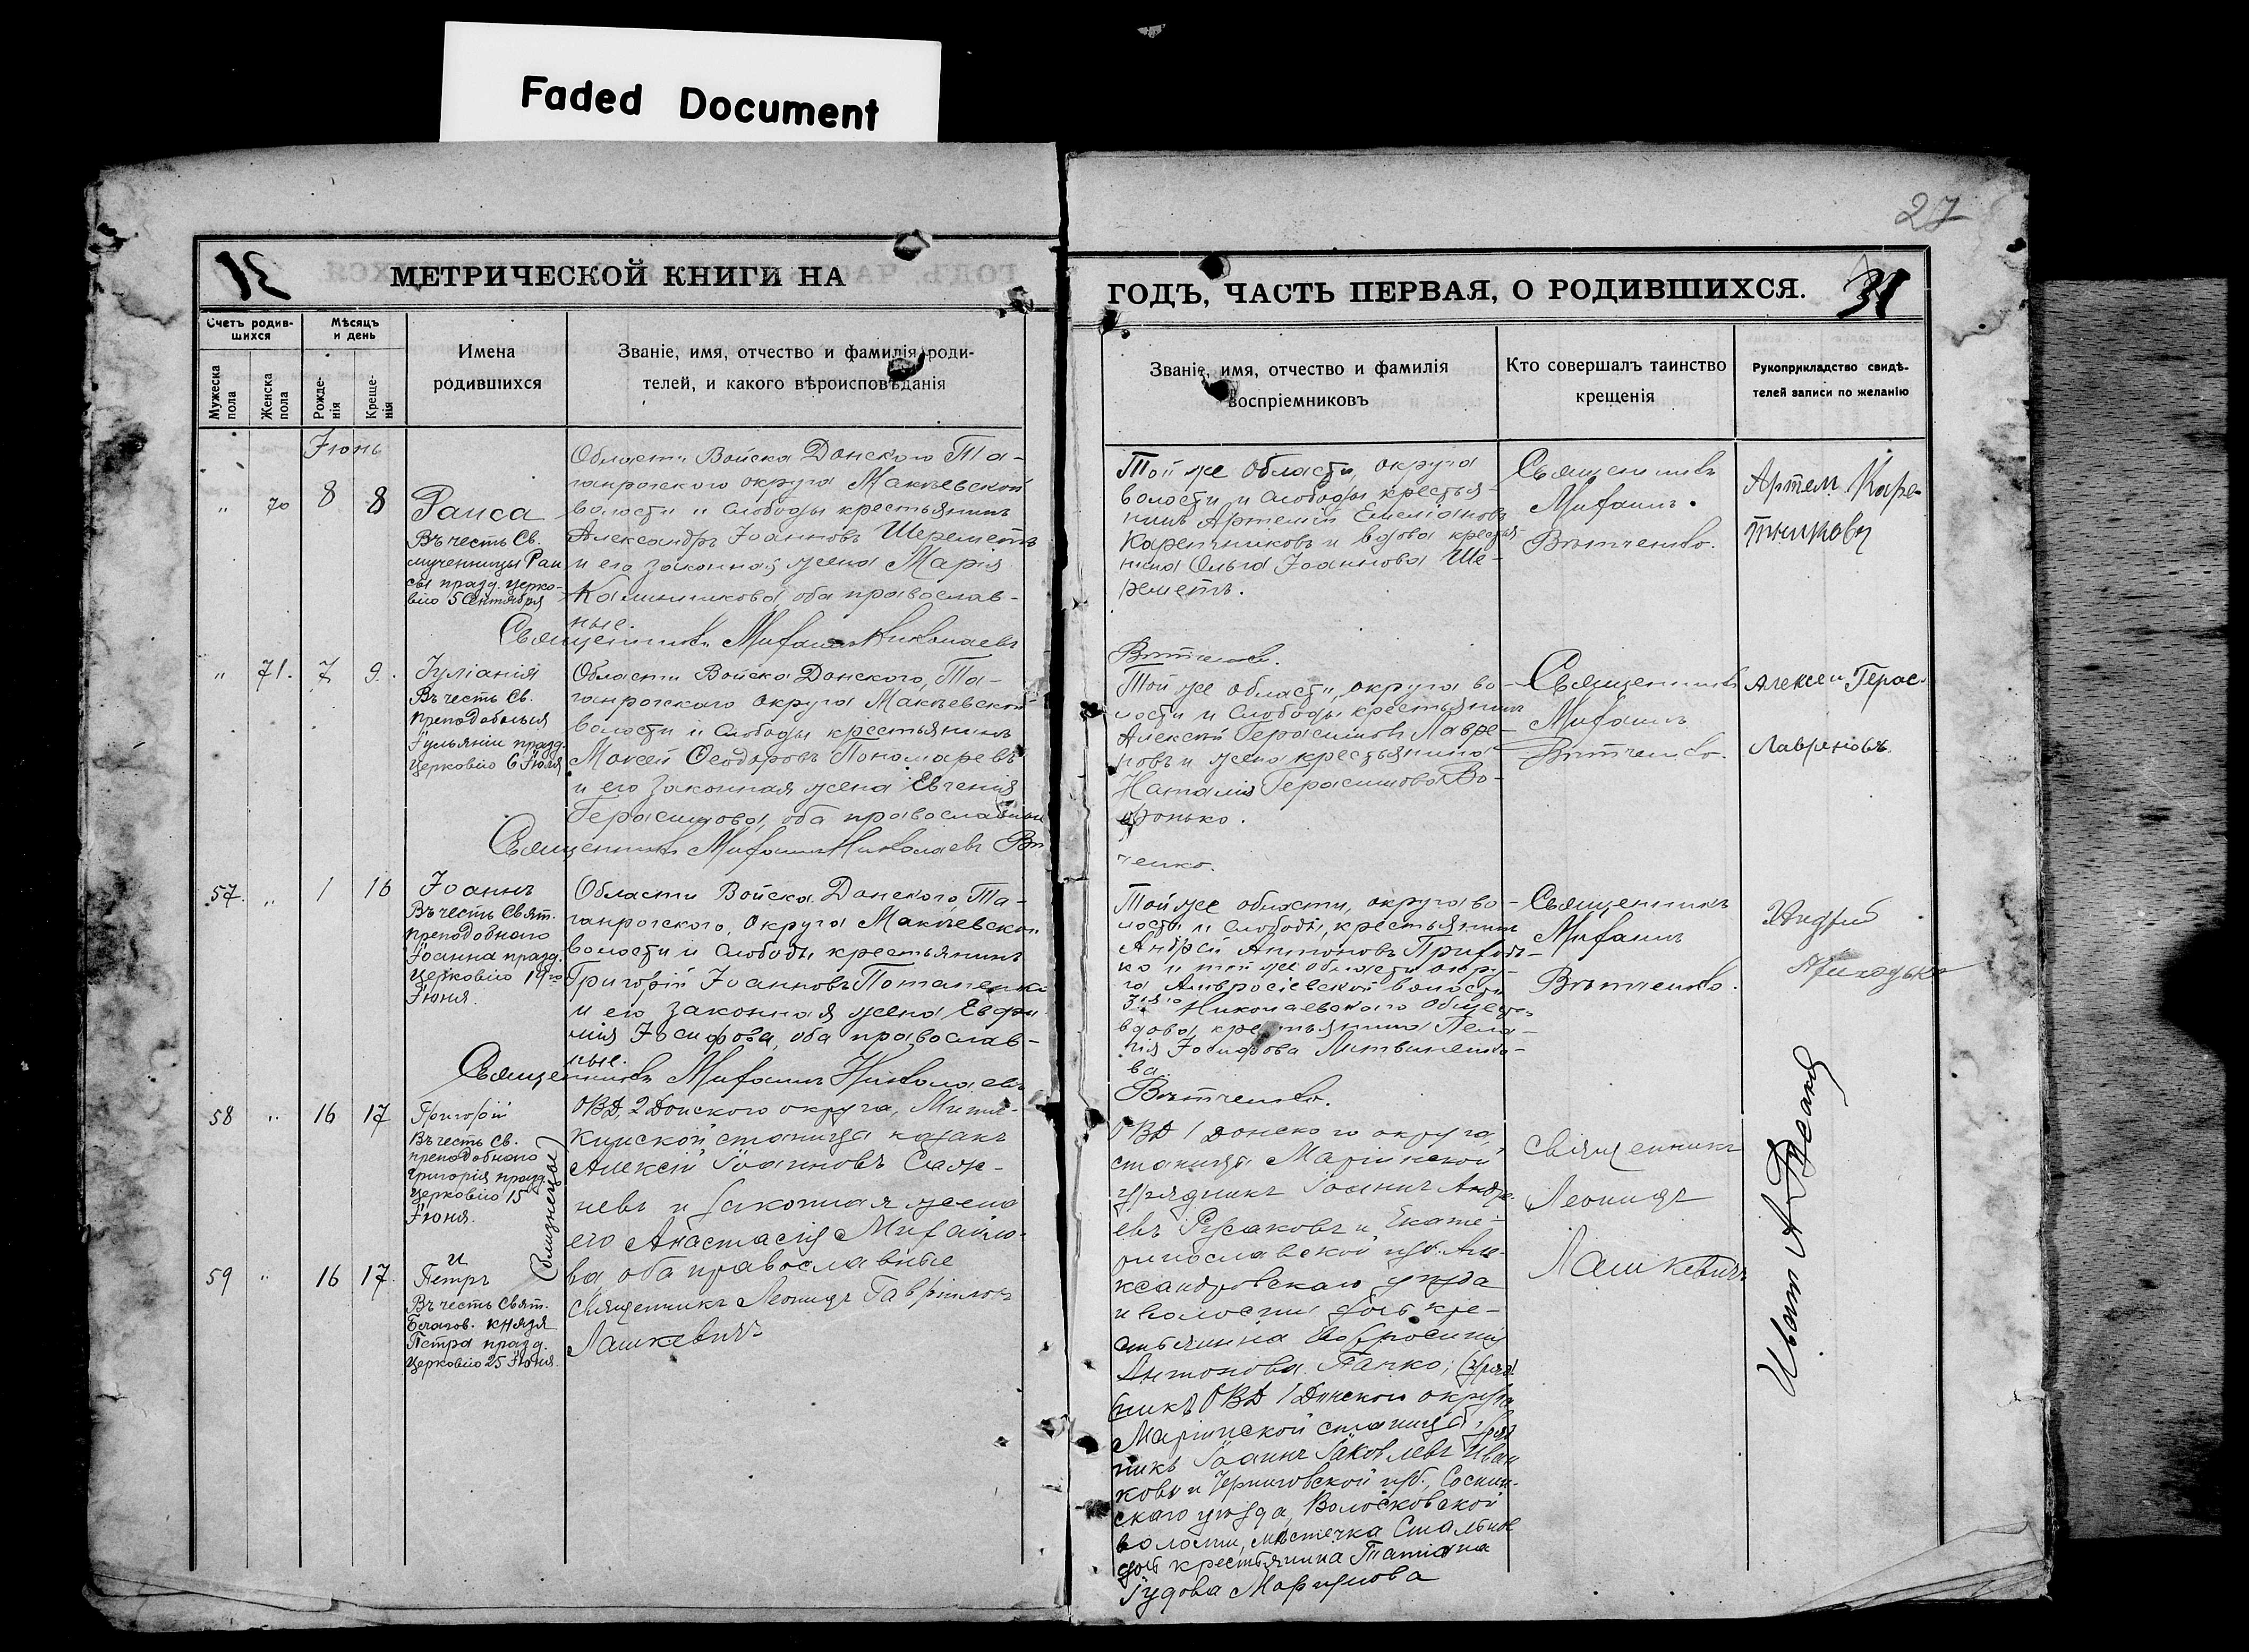 Faded Document
27
МЕТРИЧЕСКОЙ КНИГИ НА
ГОДЪ, ЧАСТЬ ПЕРВАЯ, О РОДИВШИХСЯ.
31
Счетъ родив-
шихся
Мужеска
пола
Женска
пола
Мѣсяцъ
и день
Рожде-
нія
Креще-
нія
Имена
родившихся
Званіе, имя, отчество и фамилія роди-
телей, и какого вѣроисповѣданія
Званіе, имя, отчество и фамилія
воспріемниковъ
Кто совершалъ таинство
крещенія
Рукоприкладство свидѣ-
телей записи по желанію
Іюнь
„ 70 8 8
Раиса
Въ честь Св.
мученницы Раи
сы празд. церко-
вію 5 Сентября
Области Войска Донского Та-
ганрогского округа Макѣевской
волости и слободы крестьянинъ
Александръ Іоанновъ Шереметъ
и его законная жена Марія
Калинникова оба православ-
ные.
Священникъ Михаилъ Николаевъ
Той же области, округа
волости и слободы крестья-
нинъ Артемій Емеліановъ
Каретниковъ и вдова крестья
нина Ольга Іоаннова Ше-
реметъ.
Священникъ
Михаилъ
Артем Каре-
тниковъ
„ 71. 7 9.
Іуліанія
Въ честь Св.
преподобныя
Іульяніи празд.
Церковію 6 Іюля
Области Войска Донского, Та-
ганрогского округа Макѣевской
волости и слободы крестьянинъ
Моисей Ѳеодоровъ Пономаревъ
и его законная жена Евгенія
Герасимова, оба православные
Священникъ Михаилъ Николаевъ
ченко.
Той же области, округа во-
лости и слободы крестьянинъ
Алексѣй Герасимовъ Лавре-
новъ и жена крестьянина
Наталія Герасимова Во-
ронько.
Священникъ
Михаилъ
Алексеи Герас
Лавреновъ
57. „ 1 16
Іоаннъ
Въ честь Свят.
преподобнаго
Іоанна празд.
Церковію 19го
Іюня.
Области Войска Донского, Та-
ганрогского, округа Макѣевской
волости и слободы крестьянинъ
Григорій Іоанновъ Потапенко
и его законная жена Евфи
мія Іосифова, оба православ-
ные.
Священникъ Михаилъ Николаевъ
Той же области, округа во-
лости и слободы, крестьянинъ
Андрей Антоновъ Приходь-
ко и той же области окру-
га Амвросіевской волости
Николаевского общества
вдова крестьянина Пела-
гія Іосифова Литвиненко-
ва.
Священникъ
Михаилъ
Андрей
Приходько
58 „ 16 17
Григорій
Въ честь Св.
преподобнаго
Григорія празд.
Церковію 15
Іюня.
(близнецы)
и
59 „ 16 17.
Петръ
Въ честь Свят.
Благов. князя
Петра празд.
Церковію 25 Іюня.
ОВД 2 Донского округа,
станицы казакъ
Алексій Іоанновъ
невъ и законная жена
его Анастасія Михайло-
ва оба православные
Священникъ Леонидъ Гавріиловъ
Лашкевичъ
ОВД 1 Донского округа,
станицы Маріинской
урядникъ Іоаннъ Андре
евъ Русаковъ и Екате-
ринославской губ. Але-
ксандровскаго уѣзда
и волости дочь кре-
стьянина
Антонова Папко;
ОВД 1 Донского округа
Маріинской станицы уряд
никъ Іоаннъ Іаковлевъ Иван
ковъ и Черниговской губ., Сосниц-
скаго уѣзда, Волосковской
волости, мѣстечка
дочь крестьянина Татіана
Священникъ
Леонидъ
Лашкевичъ